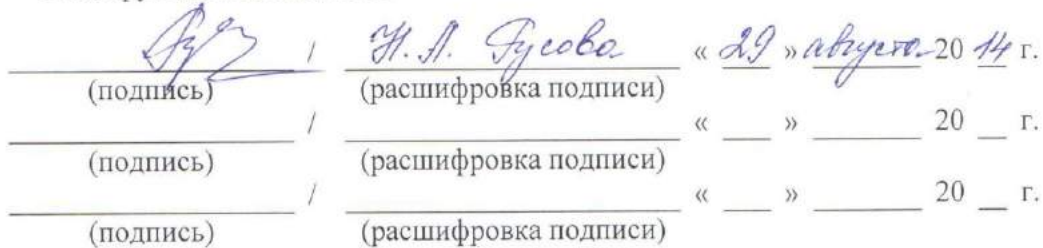 / Н. А. Гусова « 29 » августа 20 14 г.
(подпись) (расшифровка подписи)
/ « __ » ______ 20 __ г.
(подпись) (расшифровка подписи)
/ « __ » ______ 20 __ г.
(подпись) (расшифровка подписи)